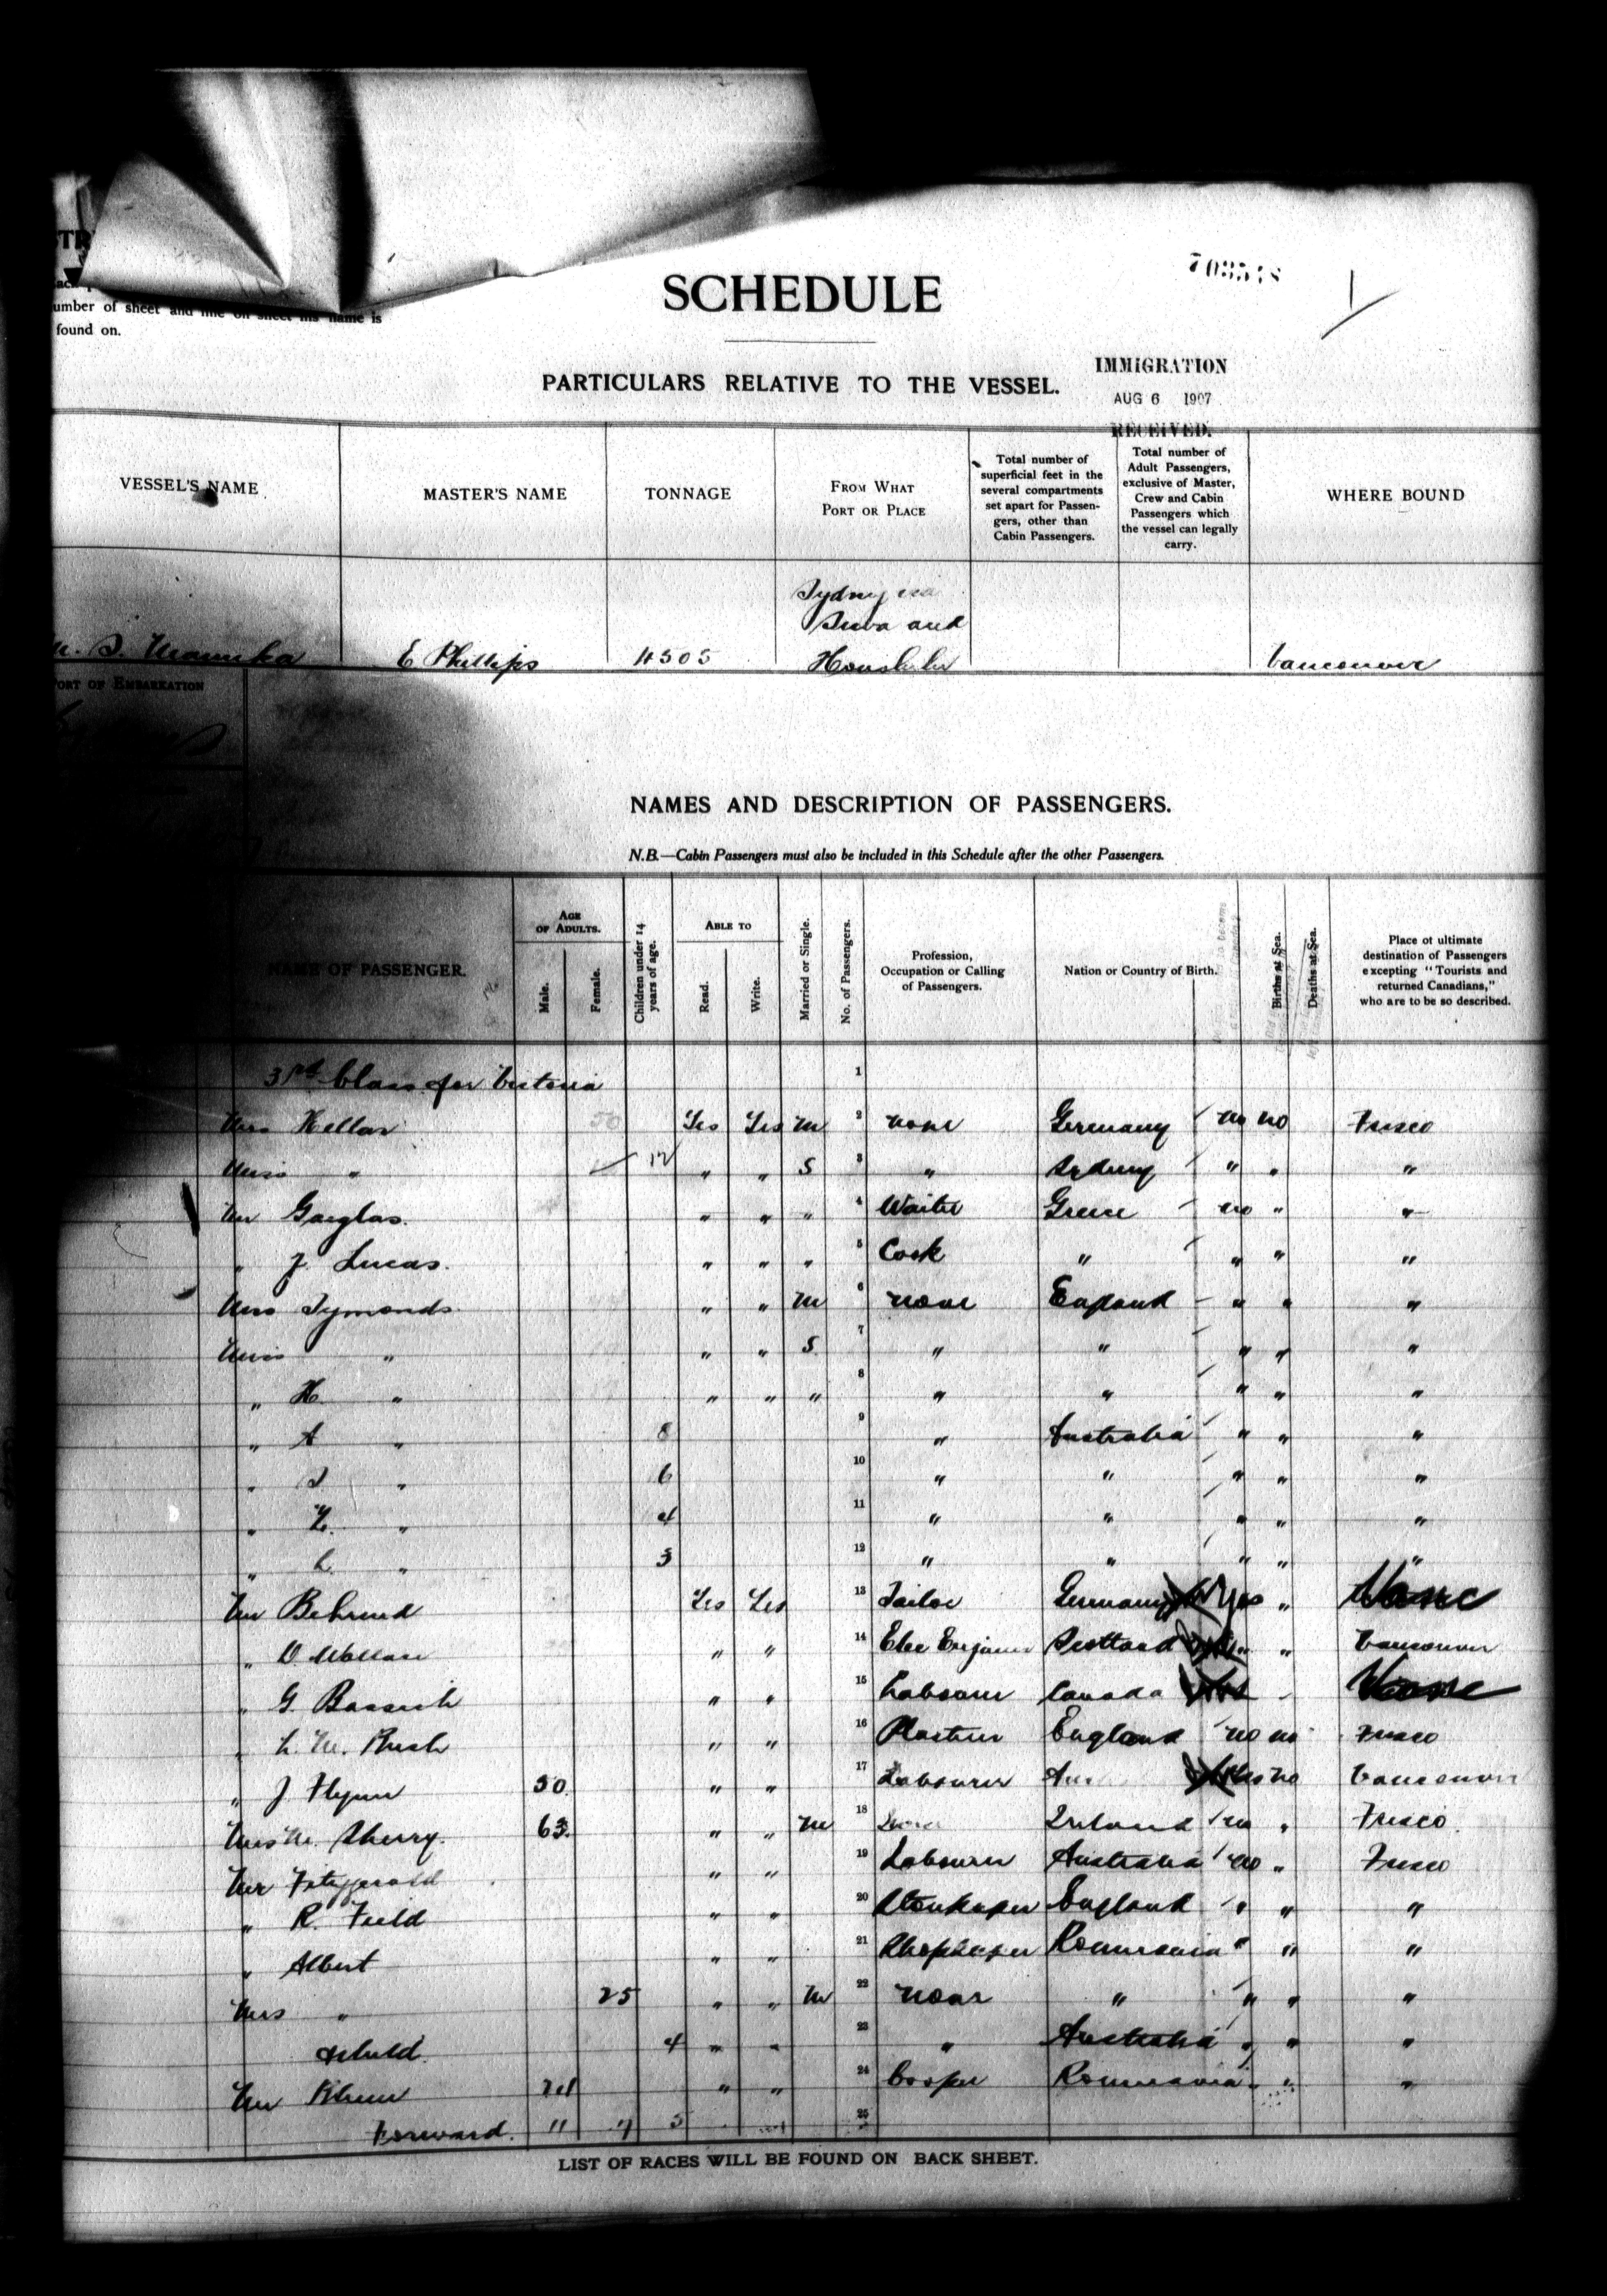 umber of sheet and line on sheet his name is
found on.
SCHEDULE
PARTICULARS RELATIVE TO THE VESSEL.
IMMIGRATION
AUG 6 1907
RECEIVED.
VESSEL'S NAME
MASTER'S NAME
TONNAGE
FROM WHAT
PORT OR PLACE
Total number of
superficial feet in the
several compartments
set apart for Passen-
gers, other than
Cabin Passengers.
Total number of
Adult Passengers,
exclusive of Master,
Crew and Cabin
Passengers which
the vessel can legally
carry.
WHERE BOUND
S. Manuka E Phillips 4505 Sydney via
Suva and
Honolulu
Vancouver
PORT OF EMBARKATION
NAMES AND DESCRIPTION OF PASSENGERS.
N.B.—Cabin Passengers must also be included in this Schedule after the other Passengers.
NAME OF PASSENGER.
AGE
OF ADULTS.
Male.
Female.
Children under 14
years of age.
ABLE TO
Read.
Write.
Married or Single.
No. of Passengers.
Profession,
Occupation or Calling
of Passengers.
Nation or Country of Birth.
Births at Sea.
Deaths at Sea.
Place of ultimate
destination of Passengers
excepting "Tourists and
returned Canadians,"
who are to be so described.
3rd Class for Victoria 1
Mrs Kellar 50 Yes Yes M 2 none Germany no no Frisco
Miss " 12 " " S 3 " Sydney " " "
Mr " " " 4 Waiter Greece no " "
" J. Lucas. " " " 5 Cook " " " "
Mrs Symonds " " M 6 none England " " "
Miss " " " S 7 " " " " "
" H. " " " " 8 " " " " "
" A " 8 9 " Australia " " "
" " 6 10 " " " " "
" " 4 11 " " " " "
" L. " 3 12 " " " " "
Mr Behrend Yes Yes 13 Tailor Germany Yes " Vanc
" D. Wallace " " 14 Elec Scotland " Vancouver
" G. " " 15 Labourer Canada Vanc
" L. M. Rush " " 16 Plasterer England no no Frisco
" J Flynn 50 " " 17 Labourer no Vancouver
Mrs M. Sherry. 63 " " M 18 Ireland no " Frisco.
Mr Fitzgerald " " 19 Labourer Australia no " Frisco
" R. Field " " 20 Storekeeper England " " "
" Albert " " 21 Shopkeeper Roumania " " "
Mrs " 25 " " M 22 none " " " "
child. 4 " " 23 " Australia " " "
Mr " " 24 Cooper Roumania " " "
Forward. 11 7 5 25
LIST OF RACES WILL BE FOUND ON BACK SHEET.